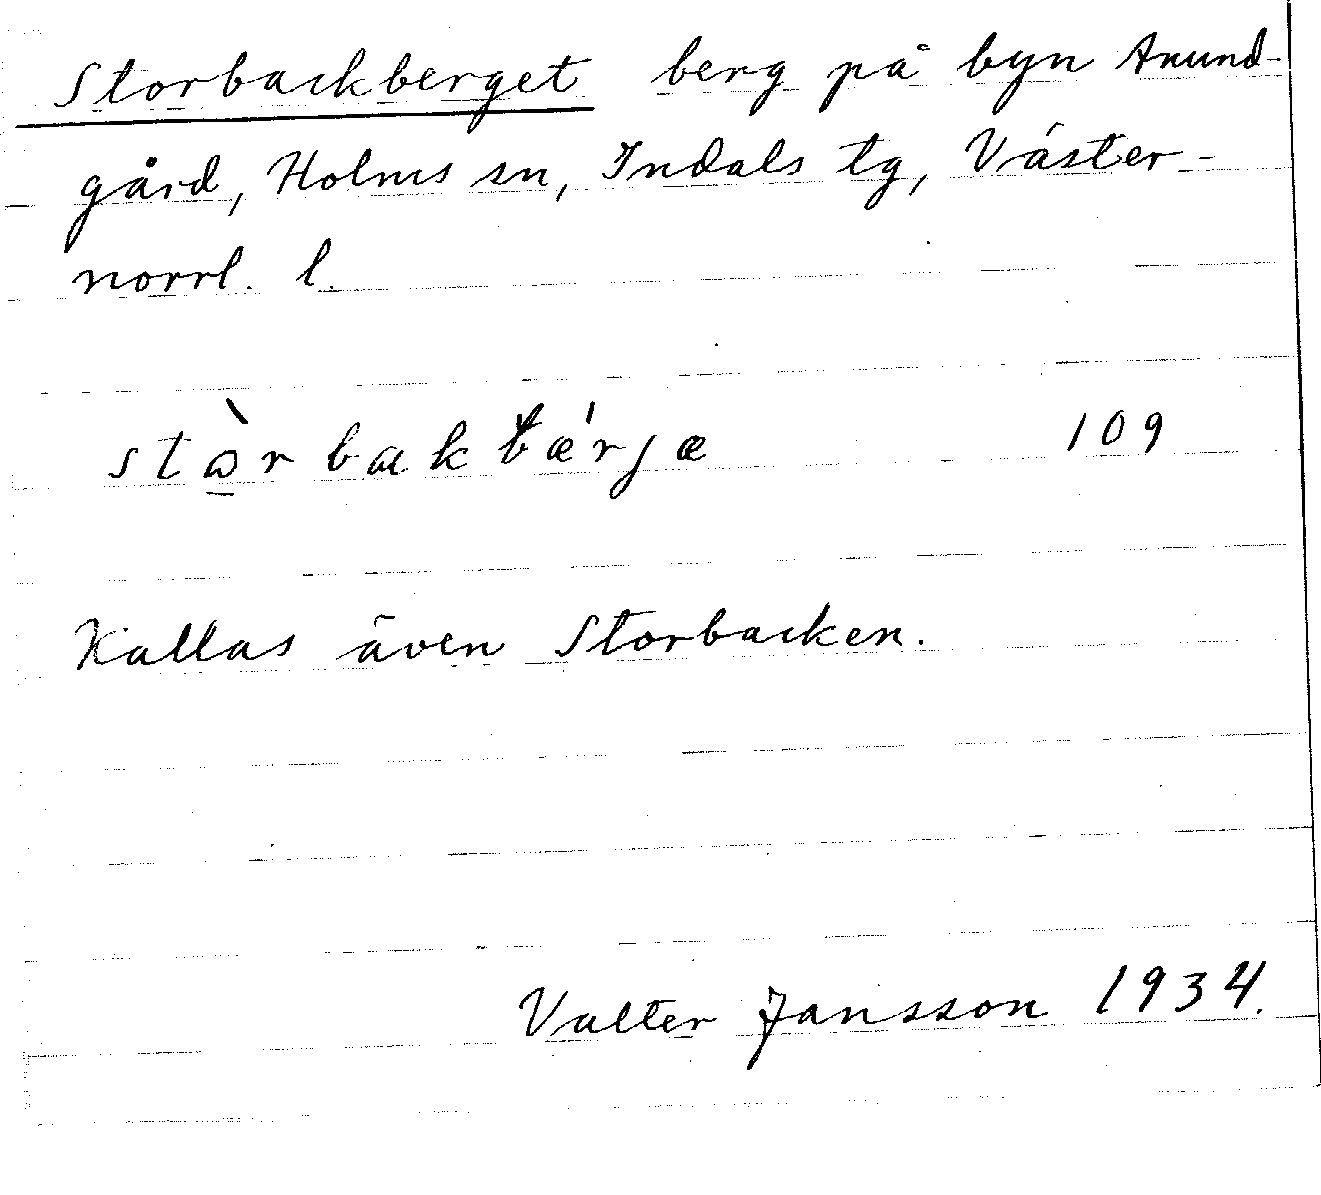 Storbackberget berg på byn Anund-
gård, Holms sn, Indals tg, Väster-
norrl. l.
stɷ̀rbakbǽrjæ 109
Kallas även Storbacken.
Valter Jansson 1934.